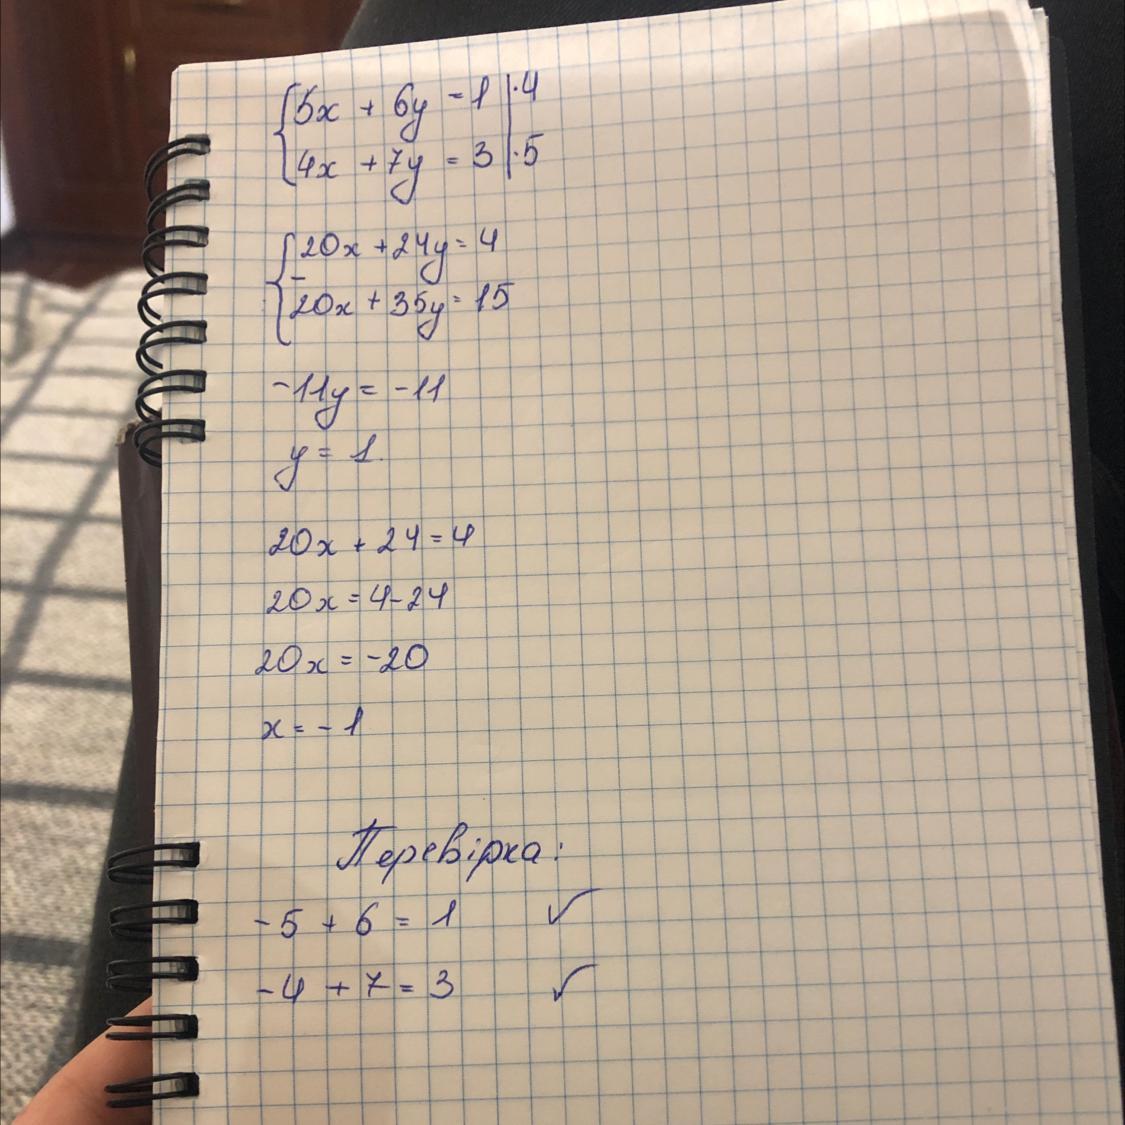 {5x + 6y = 1 |·4
4x + 7y = 3 |·5
{20x + 24y = 4
-
20x + 35y = 15
-11y = -11
y = 1.
20x + 24 = 4
20x = 4 - 24
20x = -20
x = -1
Перевірка:
-5 + 6 = 1 ✓
-4 + 7 = 3 ✓